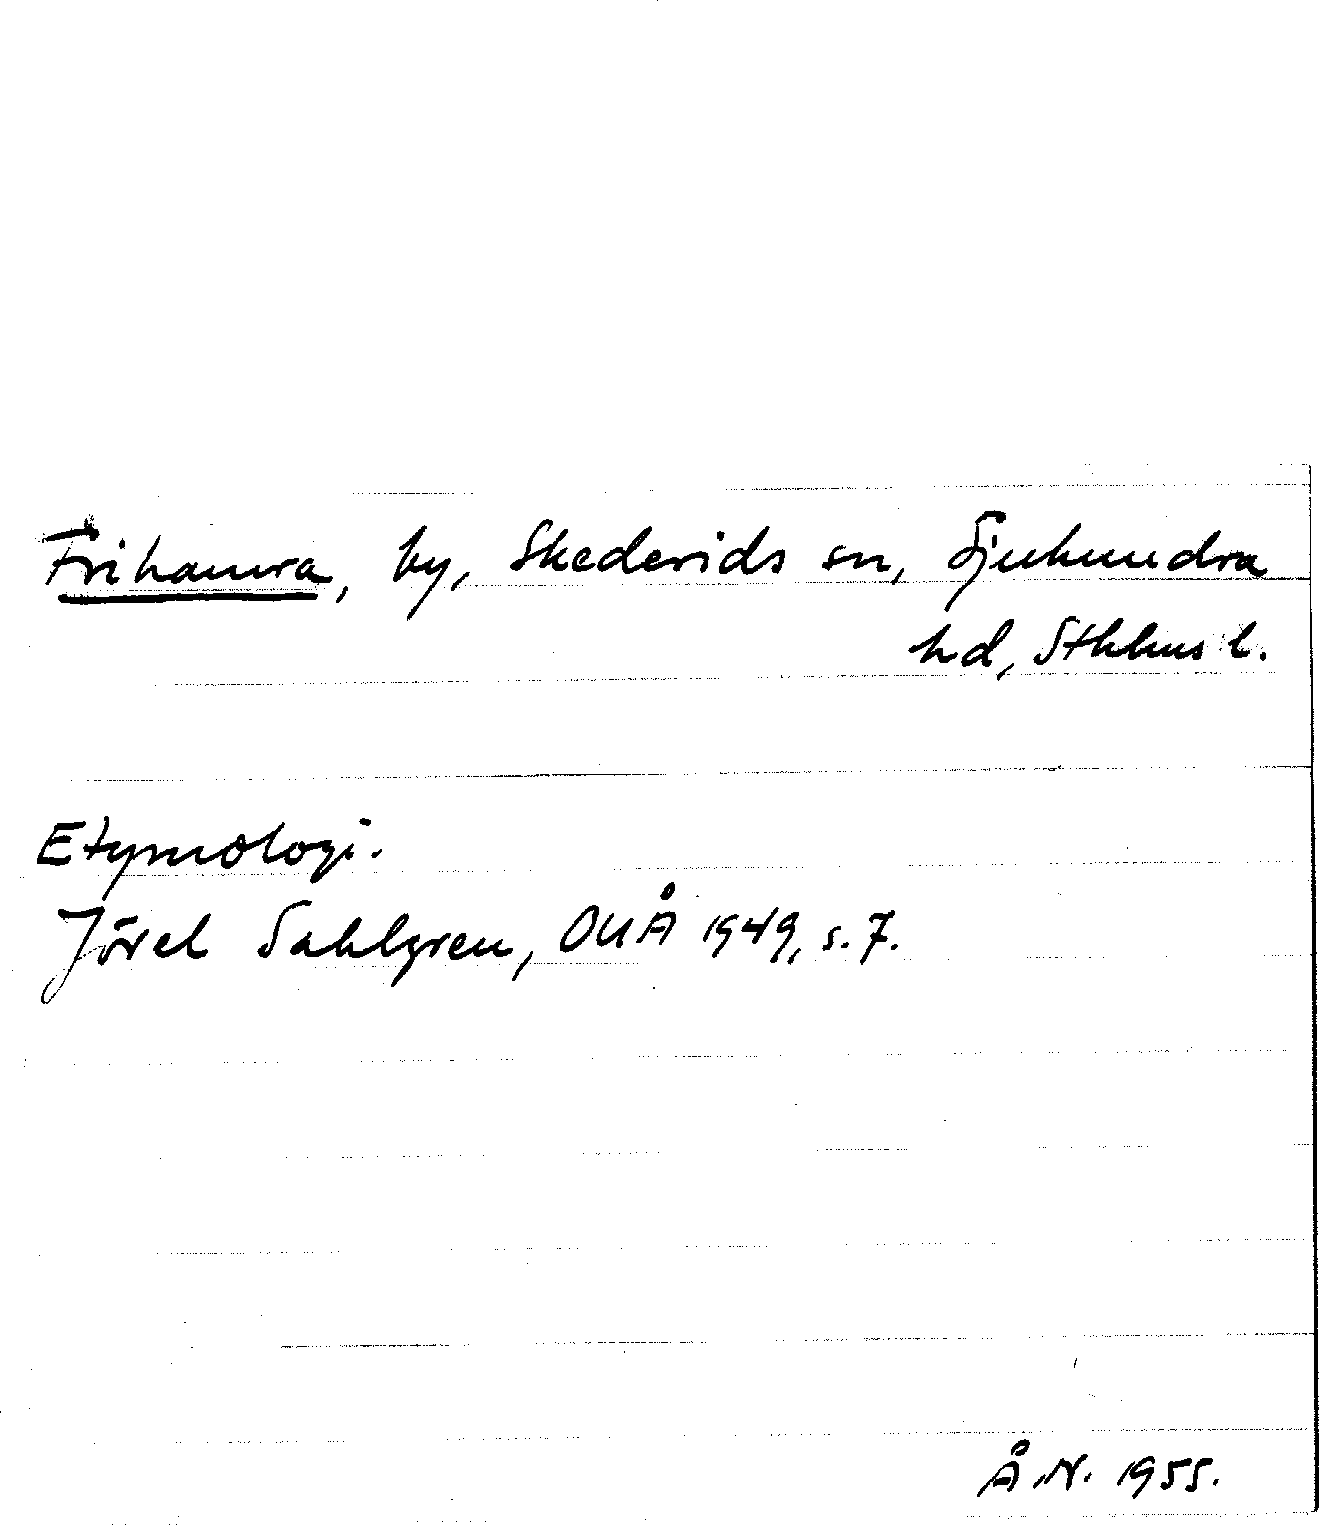 Frihamra, by, Skederids sn, Sjuhundra
hd, Sthlms l.
Etymologi.
Jörel Sahlgren, OUÅ 1949, s. 7.
Å.N. 1955.